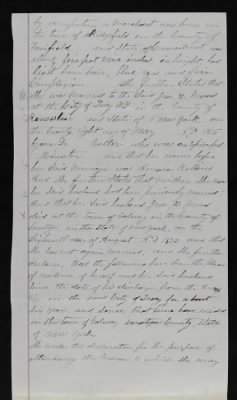 by occupation a Merchant was born in
the town of Ridgefield in the County of
Fairfield and State of Connecticut was
about five feet nine inches in height, has
light brown hair, blue eyes and fair
Complexion. She further States that
She was married to the said
at the City of Troy in the County of
Rensselaer and State of New York on
the twenty eight day of May A.D. 1815
by one Butler who was an
Minister and that her name before
her said Marriage was
And She further States that neither She nor
her said husband had been previously married
that her said husband
died at the Town of Galway in the County of
Saratoga in the State of New York, on the
day of August A.D. and that
She has not again married; and She further
declares, that the following have been the places
of residence of herself and her said husband
Since the date of his discharge from the Army
viz in the said City of Troy for about
six years, and since that time have resided
in the Town of Galway Saratoga County State
of New York.
She makes this declaration for the purpose of
obtaining the Pension to which She may